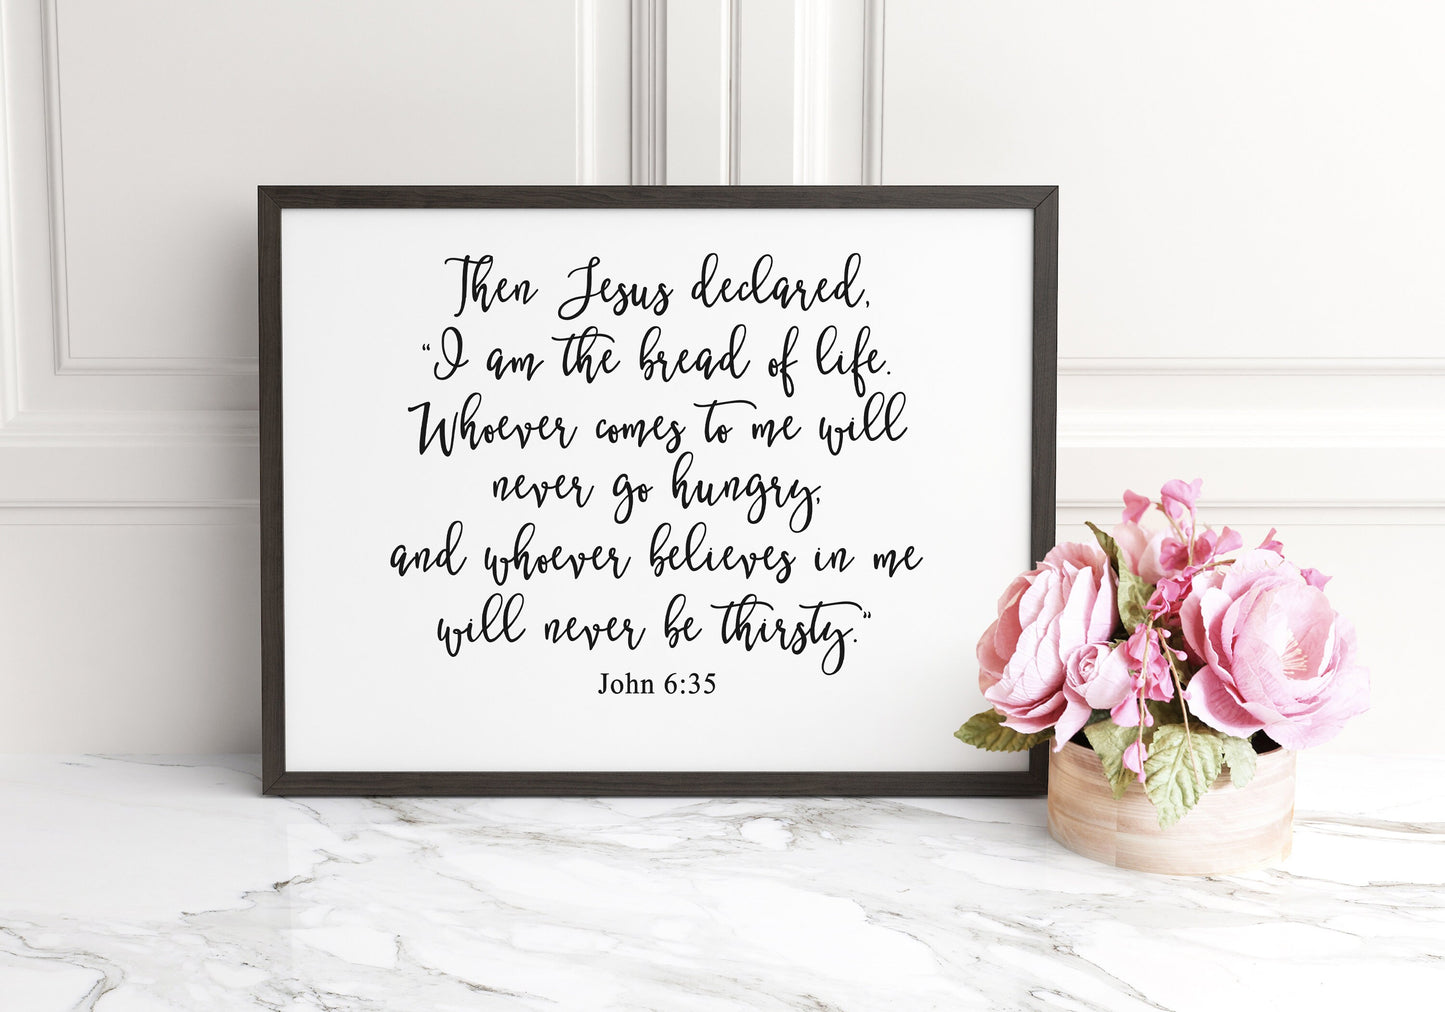 Then Jesus declared,
“I am the bread of life.
Whoever comes to me will
never go hungry,
and whoever believes in me
will never be thirsty.”
John 6:35